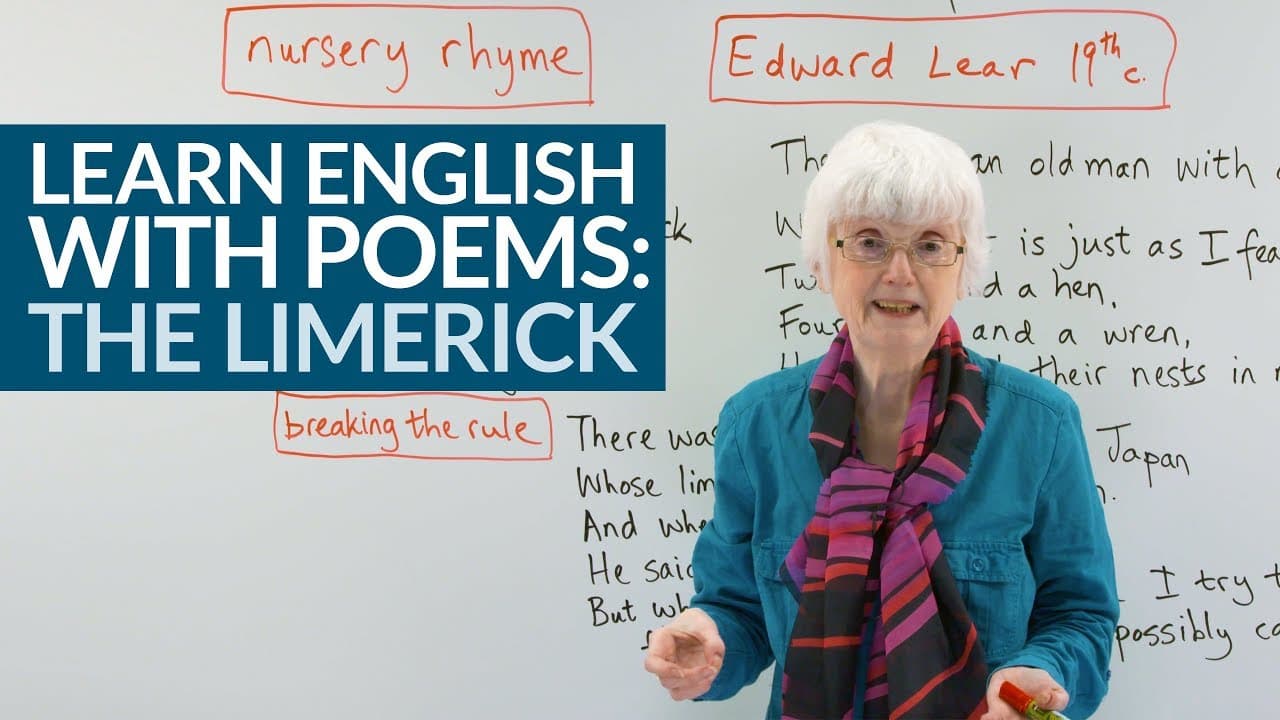 nursery rhyme
Edward Lear 19th c.
LEARN ENGLISH
WITH POEMS:
THE LIMERICK
an old man with
is just as I fea
d a hen,
Four and a wren,
their nests in
breaking the rule
There was Japan
Whose lim
And whe
He said I try t
But wh possibly ca